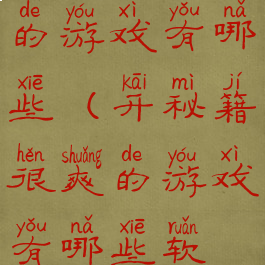 de yóu xì yǒu nǎ
的游戏有哪
xiē kāi mì jí
些（开秘籍
hěn shuǎng de yóu xì
很爽的游戏
yǒu nǎ xiē ruǎn
有哪些软